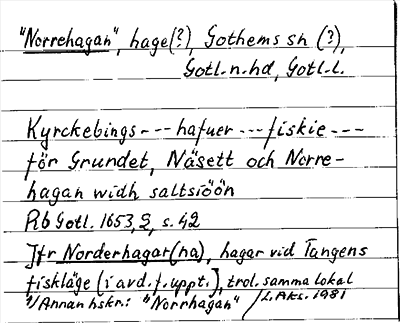 "Norrehagan", hage(?), Gothems sn (?),
Gotl.n.hd, Gotl.l.
Kyrckebings --- hafuer --- fiskie ---
för Grundet, Näsett och Norre-
hagan widh saltsiöön
Rb Gotl. 1653, 2, s. 42
Jfr Norderhagar(na), hagar vid Tangens
fiskläge (i avd. f. uppt.), trol. samma lokal
1/ Annan hskr.: "Norrhagan" / L. Aks. 1981